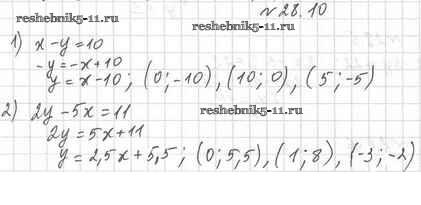 №28.10
reshebnik5-11.ru
reshebnik5-11.ru
1) x-y=10
-y=-x+10
y=x-10; (0;-10), (10;0), (5;-5)
reshebnik5-11.ru
2) 2y-5x=11
2y=5x+11
y=2,5x+5,5; (0;5,5), (1;8), (-3;-2)